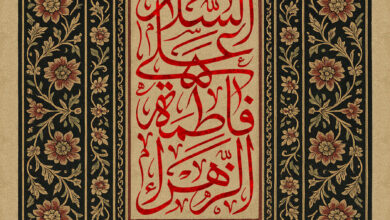 السَّلام
علی
فاطمة
الزَّهراء